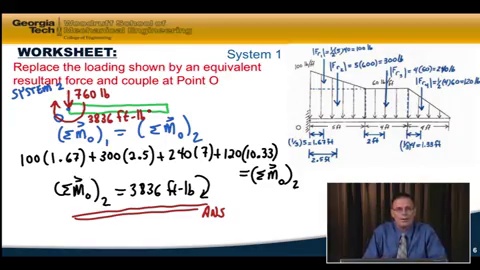 Georgia Tech
Woodruff School of Mechanical Engineering
COLLEGE OF ENGINEERING
WORKSHEET:
System 1
Replace the loading shown by an equivalent
resultant force and couple at Point O
SYSTEM 2
760 lb
3836 ft-lb
(ΣM⃗o)₁ = (ΣM⃗o)₂
100(1.67)+300(2.5)+240(7)+120(10.33)
= (ΣM⃗o)₂
(ΣM⃗o)₂ = 3836 ft-lb
ANS
|Fr₁|=½(5)40=100 lb
|Fr₂| = 5(60)=300 lb
|Fr₃| = 4(60)=240 lb
|Fr₄|=½(4)60=120 lb
100 lb/ft
60 lb/ft
O
5 ft
4 ft
4 ft
(⅓)5=1.67 ft
2 ft
(⅓)4=1.33 ft
2.5 ft
6